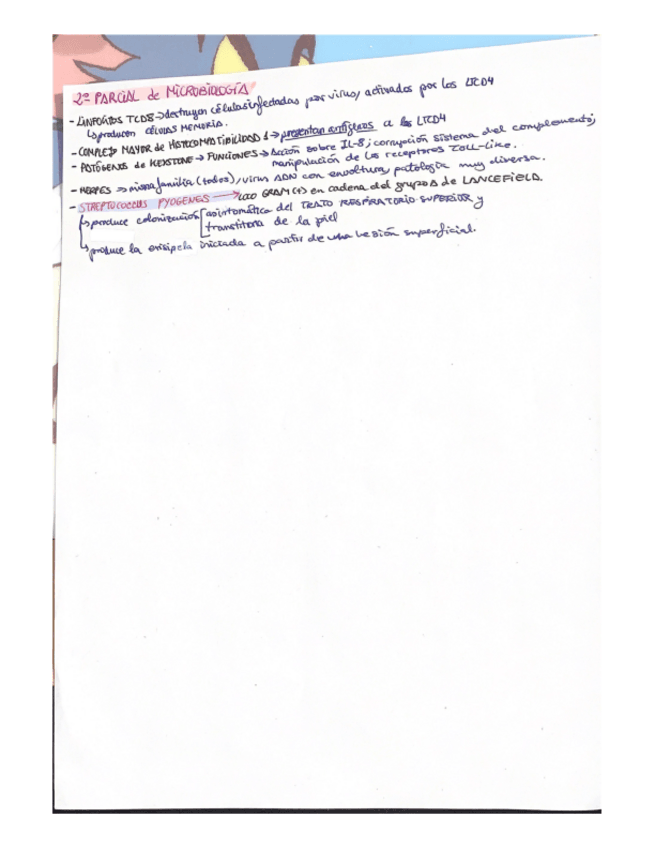 2º PARCIAL de MICROBIOLOGÍA
- LINFOCITOS TCD8 → destruyen células infectadas por virus, activados por los LTCD4
↳ producen CÉLULAS MEMORIA.
- COMPLEJO MAYOR de HISTOCOMPATIBILIDAD 1 → presentan antígenos a los LTCD4
- PATÓGENOS de KEYSTONE → FUNCIONES → Acción sobre IL-8; corrupción sistema del complemento;
manipulación de los receptores TOLL-Like.
- HERPES → misma familia (todos), virus ADN con envoltura, patología muy diversa.
- STREPTOCOCCUS PYOGENES → COCO GRAM (+) en cadena del grupo A de LANCEFIELD.
↳ produce colonización [ asintomática del TRATO RESPIRATORIO SUPERIOR y
transitoria de la piel
↳ produce la erisipela iniciada a partir de una lesión superficial.